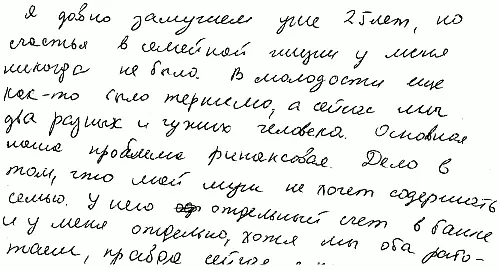 Я давно замужем уже 25 лет, но
счастья в семейной жизни у меня
никогда не было. В молодости еще
как-то было терпимо, а сейчас мы
два разных и чужих человека. Основная
наша проблема финансовая. Дело в
том, что мой муж не хочет содержать
семью. У него отдельный счет в банке
и у меня отдельно, хотя мы оба рабо-
таем, правда сейчас